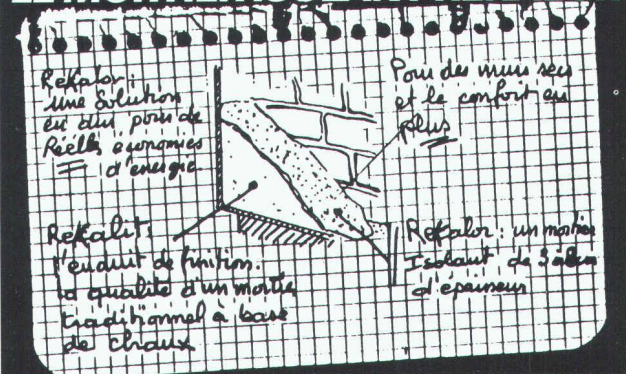 Rekalor :
une Solution
en dur pour de
Réelles économies
d'énergie.
Pour des murs secs
et le confort en
plus
Rekalit :
l'enduit de finition.
la qualité d'un mortier
traditionnel à base
de chaux
Rekalor : un mortier
Isolant de
d'épaisseur